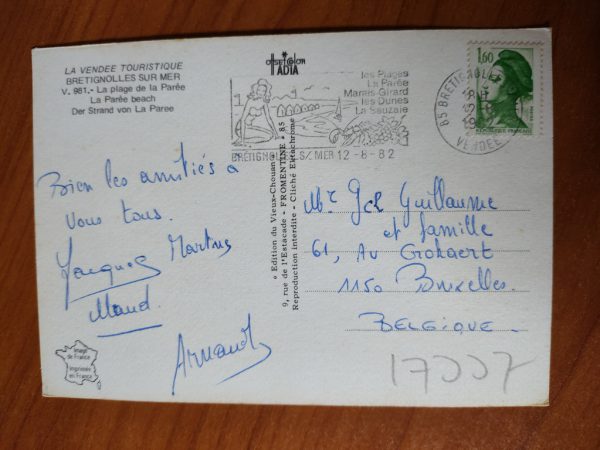 LA VENDEE TOURISTIQUE
BRETIGNOLLES SUR MER
V. 981.- La plage de la Parée
La Parée beach
Der Strand von La Paree
offset color
l'ADIA
les Plages
La Parée
Marais-Girard
les Dunes
La Sauzaie
BRETIGNOLLES S/MER 12-8-82
85 BRETIGNOLLES
VENDEE
1,60
REPUBLIQUE FRANÇAISE
Bien les amitiés à
vous tous.
Jacques Martine
Maud.
Arnaud
« Edition du Vieux-Chouan »
9, rue de l'Estacade - FROMENTINE - 85
Reproduction interdite - Cliché Ektachrome
Mr Guillaume
et famille
61, Av
1150 Bruxelles.
BELGIQUE.
Image
de France
Imprimée
en France